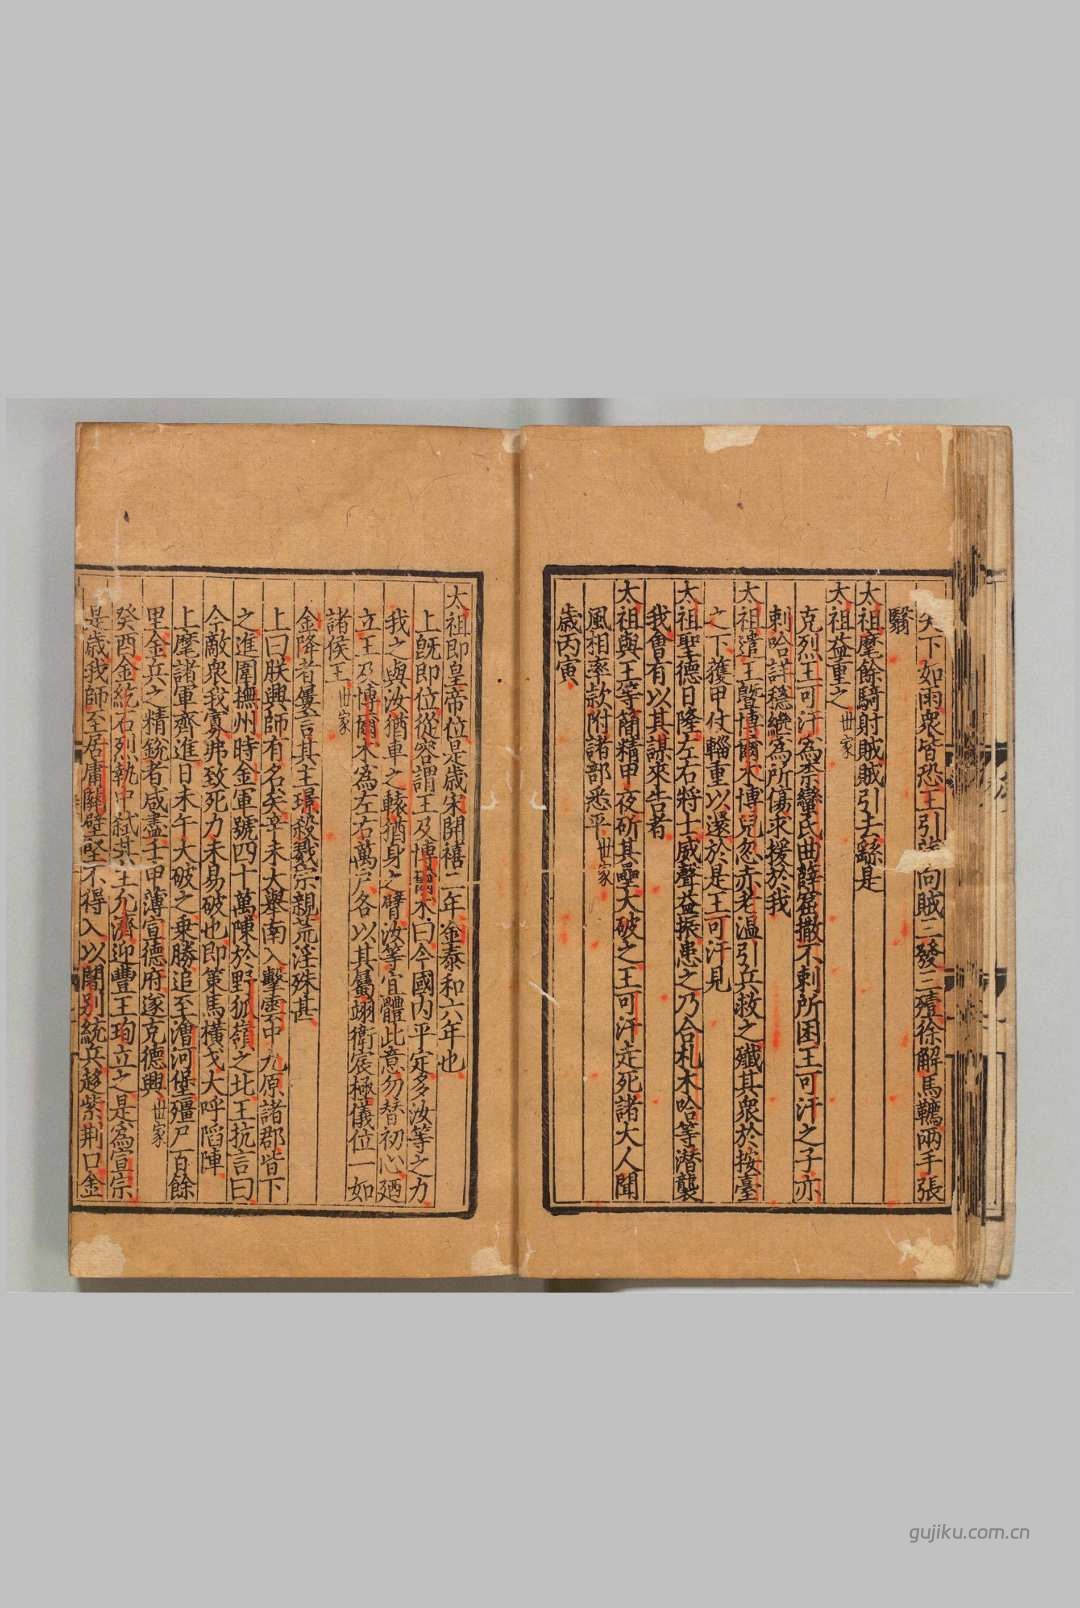 矢下如雨衆皆恐王引弓向賊三發三殪徐解馬韉兩手張
翳
太祖麾餘騎射賊賊引去繇是
太祖益重之世家
克烈王可汗爲柰蠻氏曲薛窟撤不剌所困王可汗之子亦
剌哈詳穩繼爲所傷求援於我
太祖遣王曁博爾朮博兒忽赤老溫引兵救之殲其衆於按臺
之下獲甲仗輜重以還於是王可汗見
太祖聖德日隆左右將士威聲益振患之乃合札木哈等潜襲
我會有以其謀來告者
太祖與王等簡精甲夜斫其壘大破之王可汗走死諸大人聞
風相率款附諸部悉平世家
歲丙寅
太祖即皇帝位是歲宋開禧二年金泰和六年也
上旣即位從容謂王及博爾朮曰今國内平定多汝等之力
我之與汝猶車之轅猶身之臂汝等宜體此意勿替初心廼
立王乃博爾朮爲左右萬戶各以其屬翊衛宸極儀位一如
諸侯王世家
金降者屢言其主璟殺戮宗親荒淫殊甚
上曰朕興師有名矣辛未大舉南入擊雲中九原諸郡皆下
之進圍撫州時金軍號四十萬陳於野狐嶺之北王抗言曰
今敵衆我寡弗致死力未易破也即策馬橫戈大呼陷陣
上麾諸軍齊進日未午大破之乗勝追至澮河堡殭尸百餘
里金兵之精銳者咸盡壬申薄宣德府遂克德興世家
癸酉金紇石烈執中弑其主允濟迎豐王珣立之是爲宣宗
是歲我師至居庸關壁堅不得入以闍別統兵趍紫荆口金
gujiku.com.cn